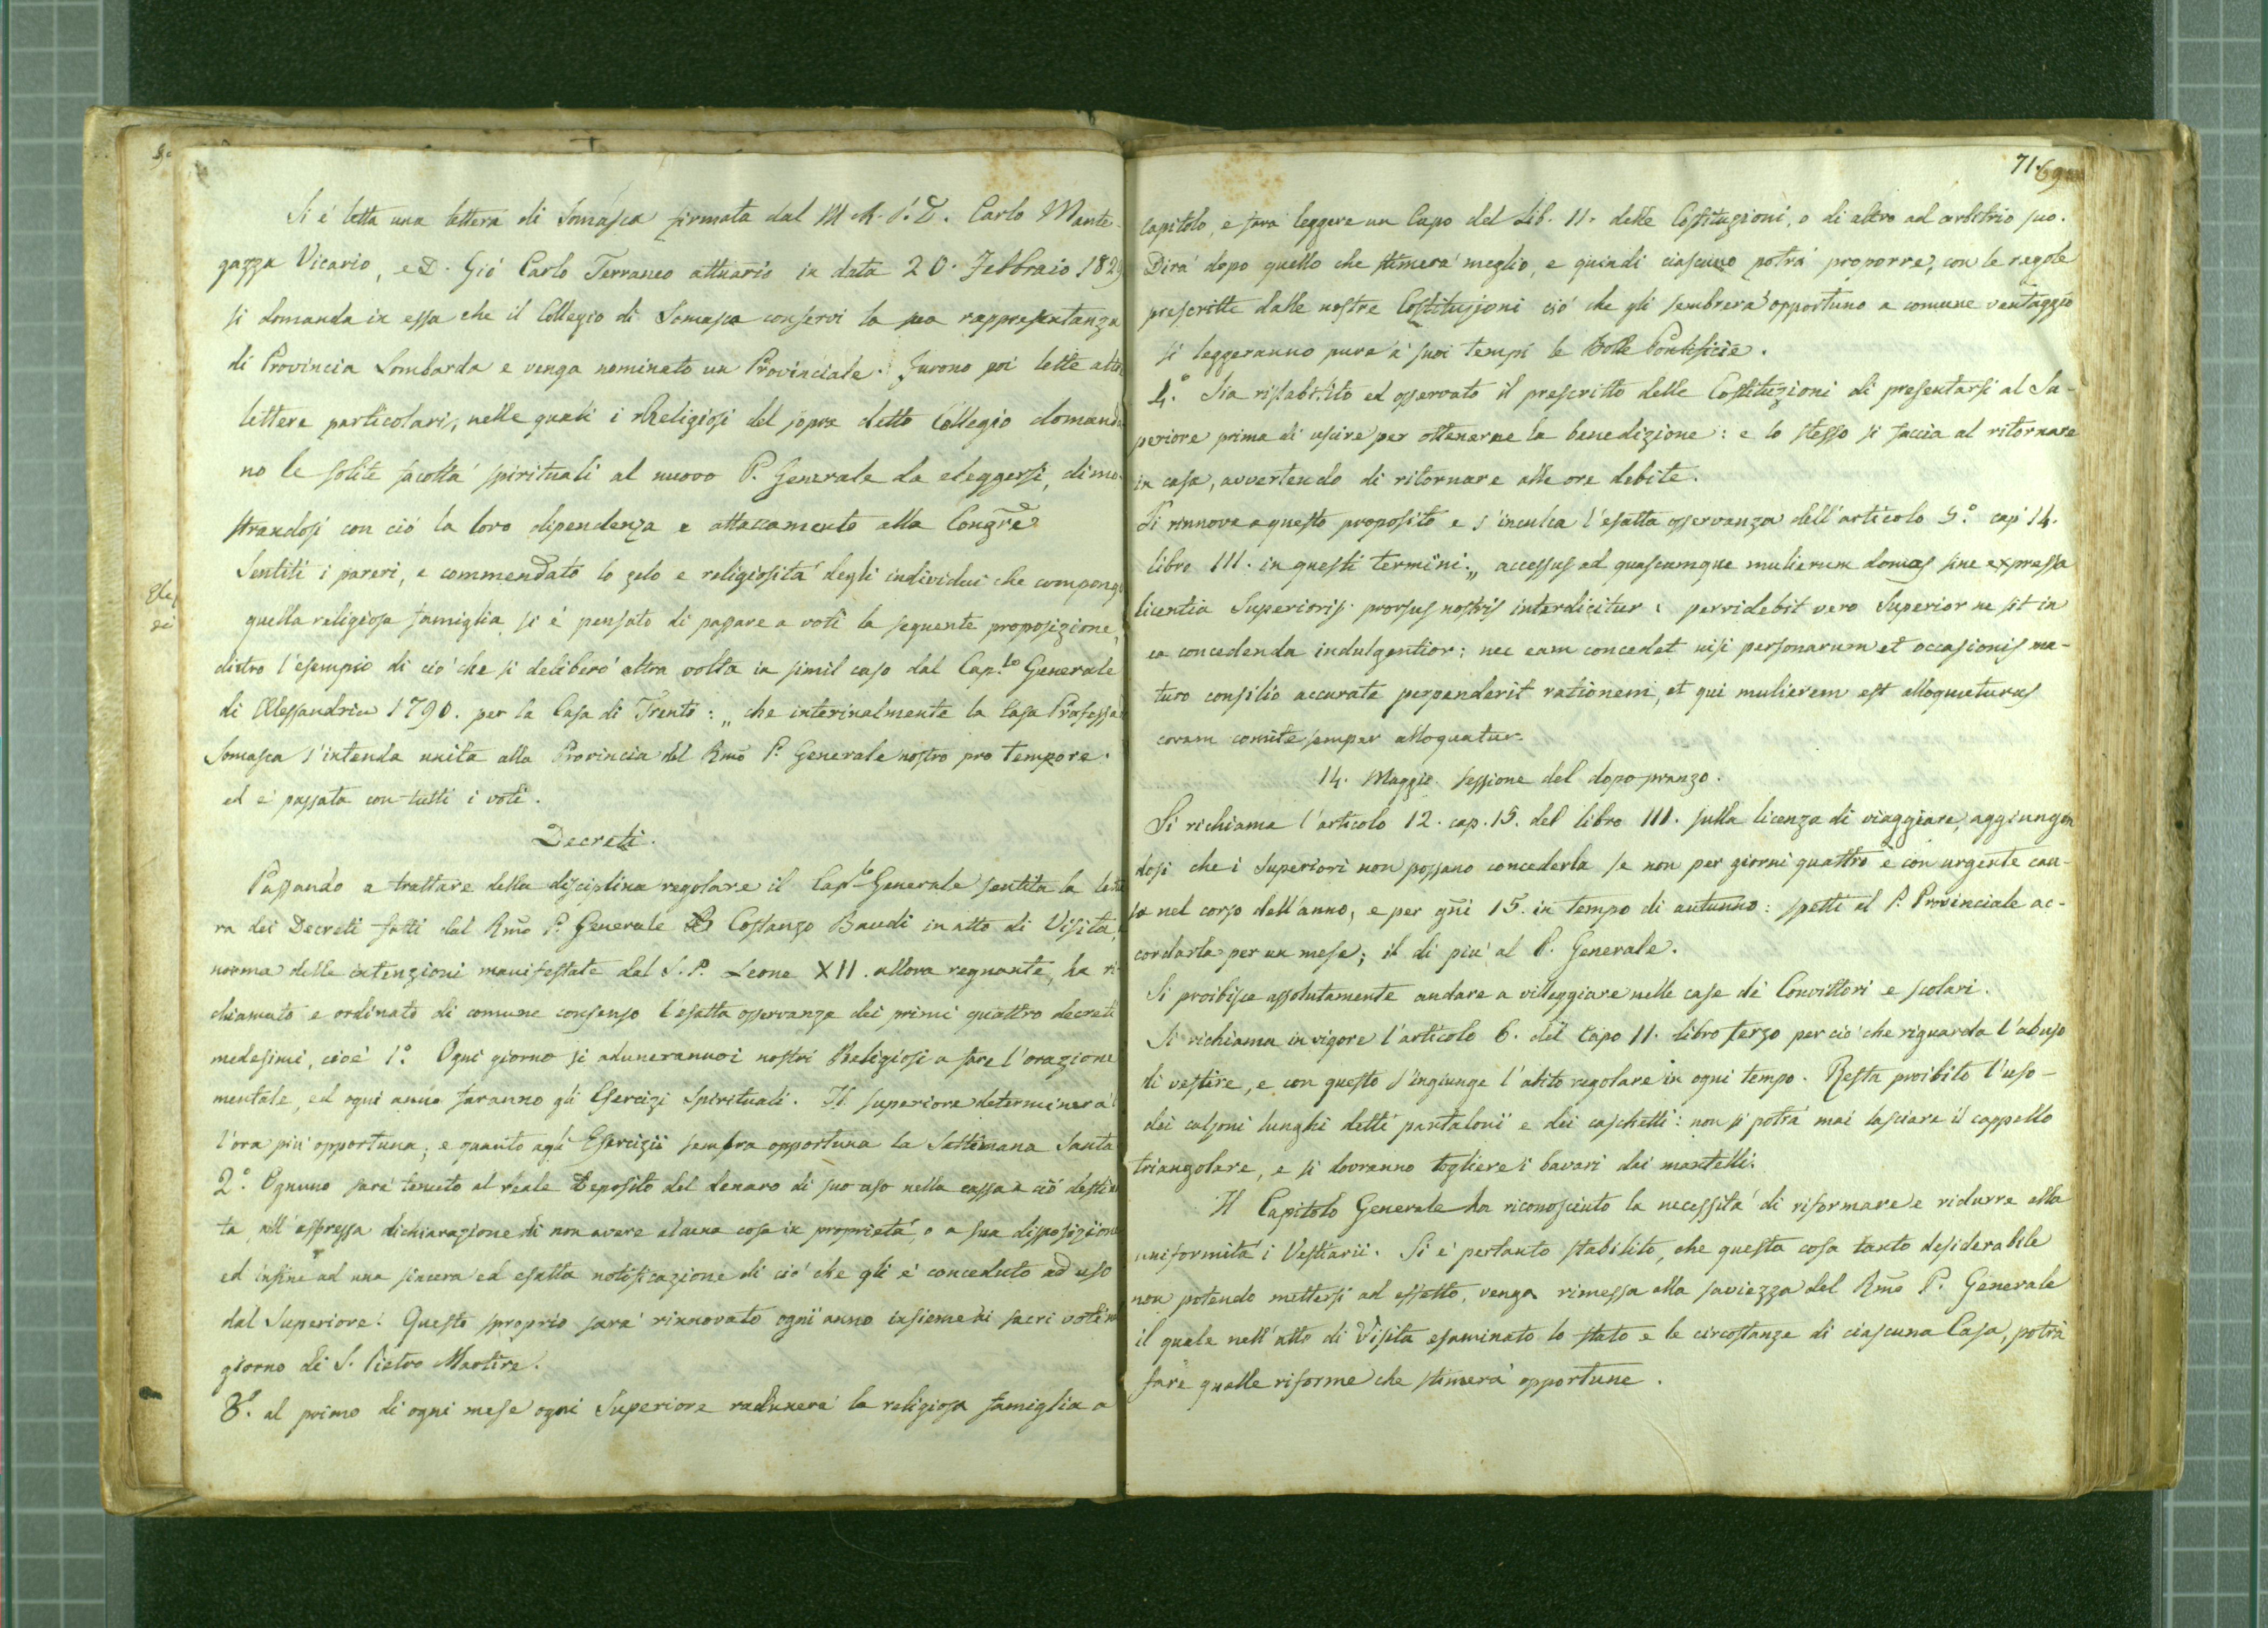 Si é letta una lettera di Somasca firmata dal M. R. P. D. Carlo Mante-
gazza Vicario, e D. Gió Carlo Terraneo attuario in data 20. Febbraio 1829
si domanda in essa che il Collegio di Somasca conservi la sua rappresentanza
di Provincia Lombarda e venga nominato un Provinciale. Furono poi lette altre
lettere particolari, nelle quali i Religiosi del sopra detto Collegio domanda
no le solite facoltá spirituali al nuovo P. Generale da eleggersi, dimo-
strandosi con ció la loro dipendenza e attaccamento alla Congne
Sentiti i pareri, e commendato lo zelo e religiositá degli individui che compongo
quella religiosa famiglia, si é pensato di passare a voti la seguente proposizione,
dietro l'esempio di ció che si deliberó altra volta in simil caso dal Cap.to Generale
di Alessandria 1790. per la Casa di Trento: „ che interinalmente la Casa Professa
Somasca s'intenda unita alla Provincia del Rmo P. Generale nostro pro tempore.
ed é passata con tutti i voti.
Decreti.
Passando a trattare della disciplina regolare il Cap.to Generale sentita la lettu
ra dei Decreti fatti dal Rmo P. Generale D Costanzo Baudi in atto di Visita,
norma delle intenzioni manifestate dal S. P. Leone XII. allora regnante, ha ri-
chiamato e ordinato di comune consenso l'esatta osservanza dei primi quattro decreti
medesimi, cioé 1.° Ogni giorno si aduneranno i nostri Religiosi a fare l'orazione
mentale, ed ogni anno faranno gli Esercizi Spirituali. Il superiore determinerá
l'ora piú opportuna; e quanto agli Esercizii sembra opportuna la Settimana Santa
2.° Ognuno sará tenuto al reale Deposito del denaro di suo uso nella cassa a ció destina
ta, all'espressa dichiarazione di non avere alcuna cosa in proprietá, o a sua disposizione
ed infine ad una sincera ed esatta notificazione di ció che gli é conceduto ad uso
dal Superiore. Questo sproprio sará rinnovato ogni anno insieme ai sacri voti nel
giorno di S. Pietro Martire.
3.° al primo di ogni mese ogni Superiore radunerá la religiosa famiglia a
71. 69
capitolo, e fará leggere un Capo del Lib. II. delle Costituzioni, o di altro ad arbitrio suo.
Dirá dopo quello che stimerá meglio, e quindi ciascuno potrá proporre, con le regole
prescritte dalle nostre Costituzioni ció che gli sembrerá opportuno a comune vantaggio
si leggeranno pure a' suoi tempi le Bolle Pontificie.
4.° Sia ristabilito ed osservato il prescritto delle Costituzioni di presentarsi al Su-
periore prima di uscire per ottenerne la benedizione: e lo stesso si faccia al ritornare
in casa, avvertendo di ritornare alle ore debite.
Si rinnova a questo proposito e s'inculca l'esatta osservanza dell'articolo 5.° cap 14.
libro III. in questi termini: „ accessus ad quascumque mulierum domos sine expressa
licentia Superioris prorsus nostris interdicitur: pervidebit vero Superior ne sit in
ea concedenda indulgentior: nec eam concedet nisi personarum et occasionis ma-
turo consilio accurate perpenderit rationem, et qui mulierem est alloquuturus
coram comite semper alloquatur.
14. Maggio sessione del dopo pranzo.
Si richiama l'articolo 12. cap. 15. del libro III. sulla licenza di viaggiare, aggiungen
dosi che i Superiori non possano concederla se non per giorni quattro e con urgente cau-
sa nel corso dell'anno, e per gni 15. in tempo di autunno: spetti al P. Provinciale ac-
cordarla per un mese; il di piú al P. Generale.
Si proibisce assolutamente andare a villeggiare nelle case dé Convittori e scolari.
Si richiama in vigore l'articolo 6. del Capo 11. libro terzo per ció che riguarda l'abuso
di vestire, e con questo s'ingiunge l'abito regolare in ogni tempo. Resta proibito l'uso
dei calzoni lunghi detti pantaloni e dei caschetti: non si potrá mai lasciare il cappello
triangolare, e si dovranno togliere i bavari dai mantelli.
Il Capitolo Generale ha riconosciuto la necessitá di riformare e ridurre alla
uniformitá i Vestiarii. Si é pertanto stabilito, che questa cosa tanto desiderabile
non potendo mettersi ad effetto, venga rimessa alla saviezza del Rmo P. Generale
il quale nell'atto di Visita esaminato lo stato e le circostanze di ciascuna Casa, potrá
fare quelle riforme che stimerá opportune.